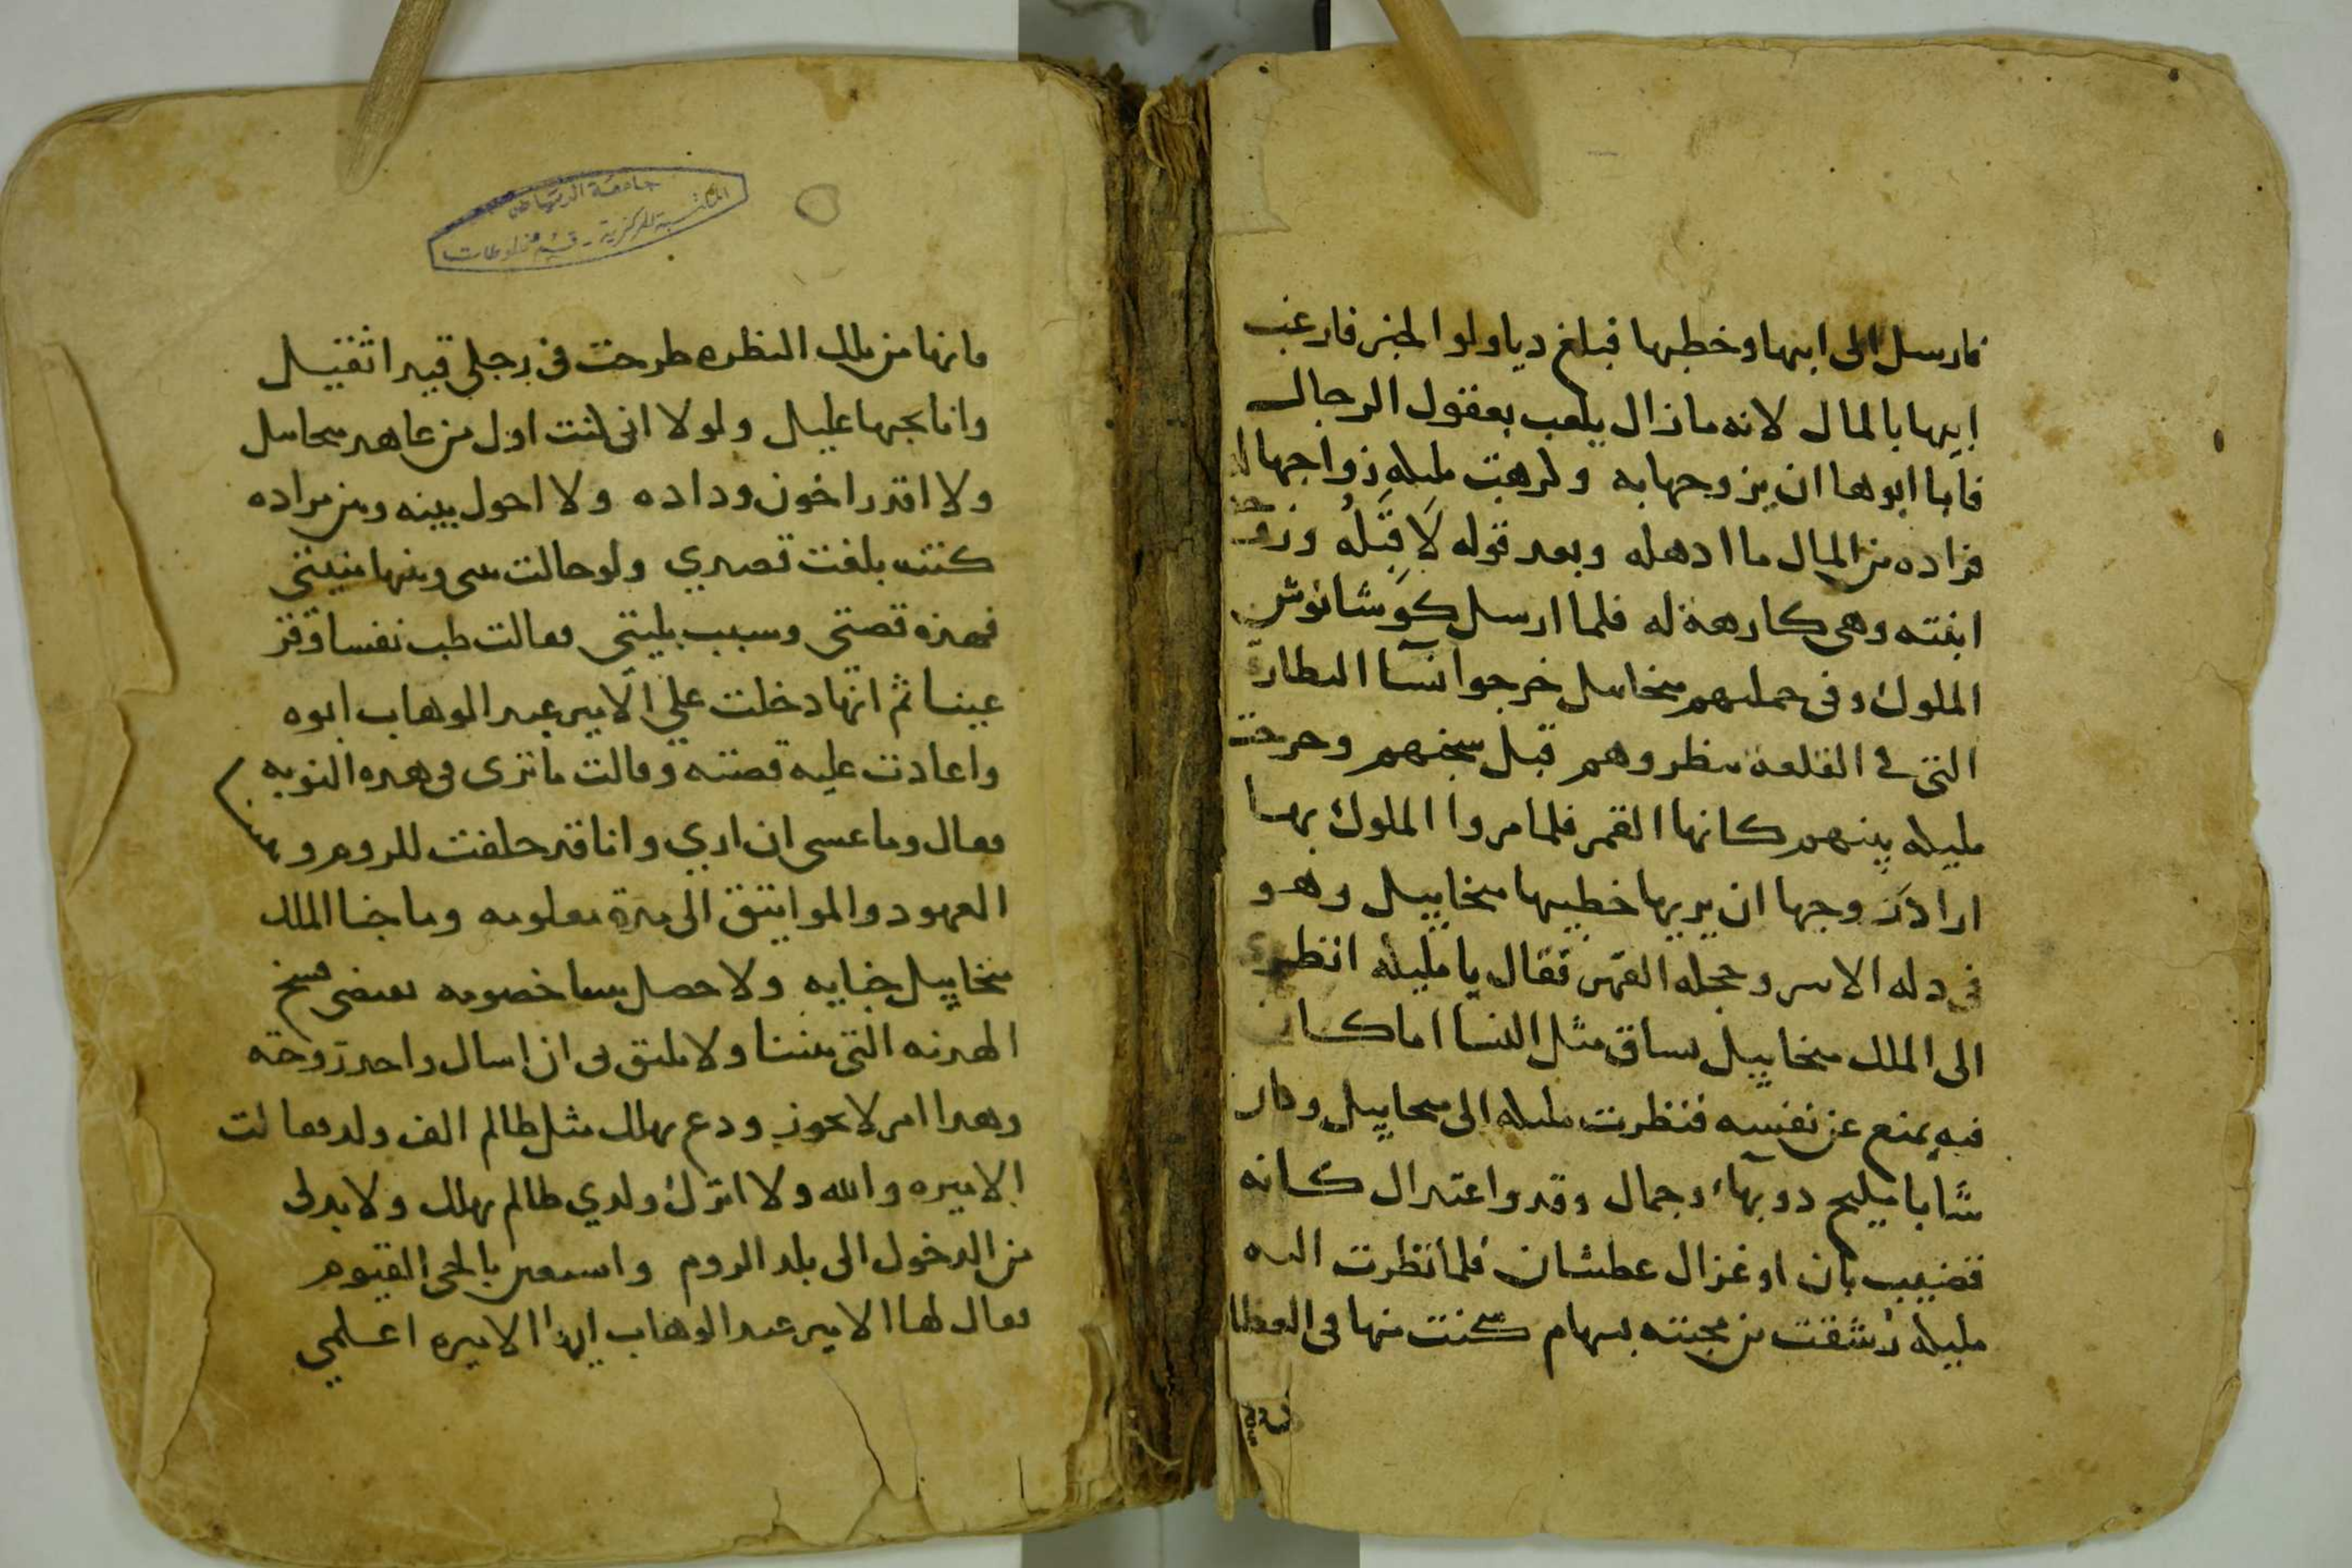 فارسل الى ابيها وخطبها فبلغ دياولوا الخبر فارغب
ابيها بالمال لانه مازال يلعب بعقول الرجال
فابا ابوها ان يزوجها به وكرهت مليله زواجها
فزاده من المال ما ادهله وبعد قوله لا قبله
ابنته وهى كارهة له فلما ارسل كوشانوش
الملوك وفى جملتهم مخاييل خرجوا نسآ البطارقة
التى في القلعة ينظروهم قبل سجنهم وخرجت
مليله بينهم كانها القمر فلما مروا الملوك بها
اراد زوجها ان يريها خطيبها مخاييل وهو
في دله الاسر وخجله القهر فقال يا مليله انظري
الى الملك مخاييل يساق مثل النسا اما كان
فيه يمنع عن نفسه فنظرت مليله الى مخاييل وكان
شابا مليح دو بهاء وجمال وقد واعتدال كانه
قضيب بان او غزال عطشان فلما نظرت اليه
مليله رشقت من محبته بسهام سكنت منها فى العظا
جامعة الرياض
المكتبة المركزية - قسم مخطوطات
وانها من تلك النظره طرحت في رجلي قيدا ثقيل
وانا بحبها عليل ولولا انى كنت اول من عاهد مخاييل
ولا اقدر اخون وداده ولا احول بينه وبين مراده
كنت بلغت قصدي ولو حالت بينى وبينها منيتي
فهذه قصتي وسبب بليتي فقالت طب نفسا وقر
عينا ثم انها دخلت علي الامير عبد الوهاب ابوه
واعادت عليه قصته وقالت ما ترى فى هده النوبه
فقال وما عسى ان اري وانا قد حلفت للروم و
العهود والمواثيق الى مدة معلومه وما جنا الملك
مخاييل جنايه ولا حصل بيننا خصومه تقتضى فسخ
الهدنه التى بيننا ولا يليق بى ان اسال واحد زوجته
وهدا امر لا يجوز ودع يهلك مثل ظالم الف ولد فقالت
الاميره والله ولا اترك ولدي ظالم يهلك ولا بد لى
من الدخول الى بلد الروم واستعين بالحى القيوم
فقال لها الامير عبد الوهاب ايها الاميره اعلمي